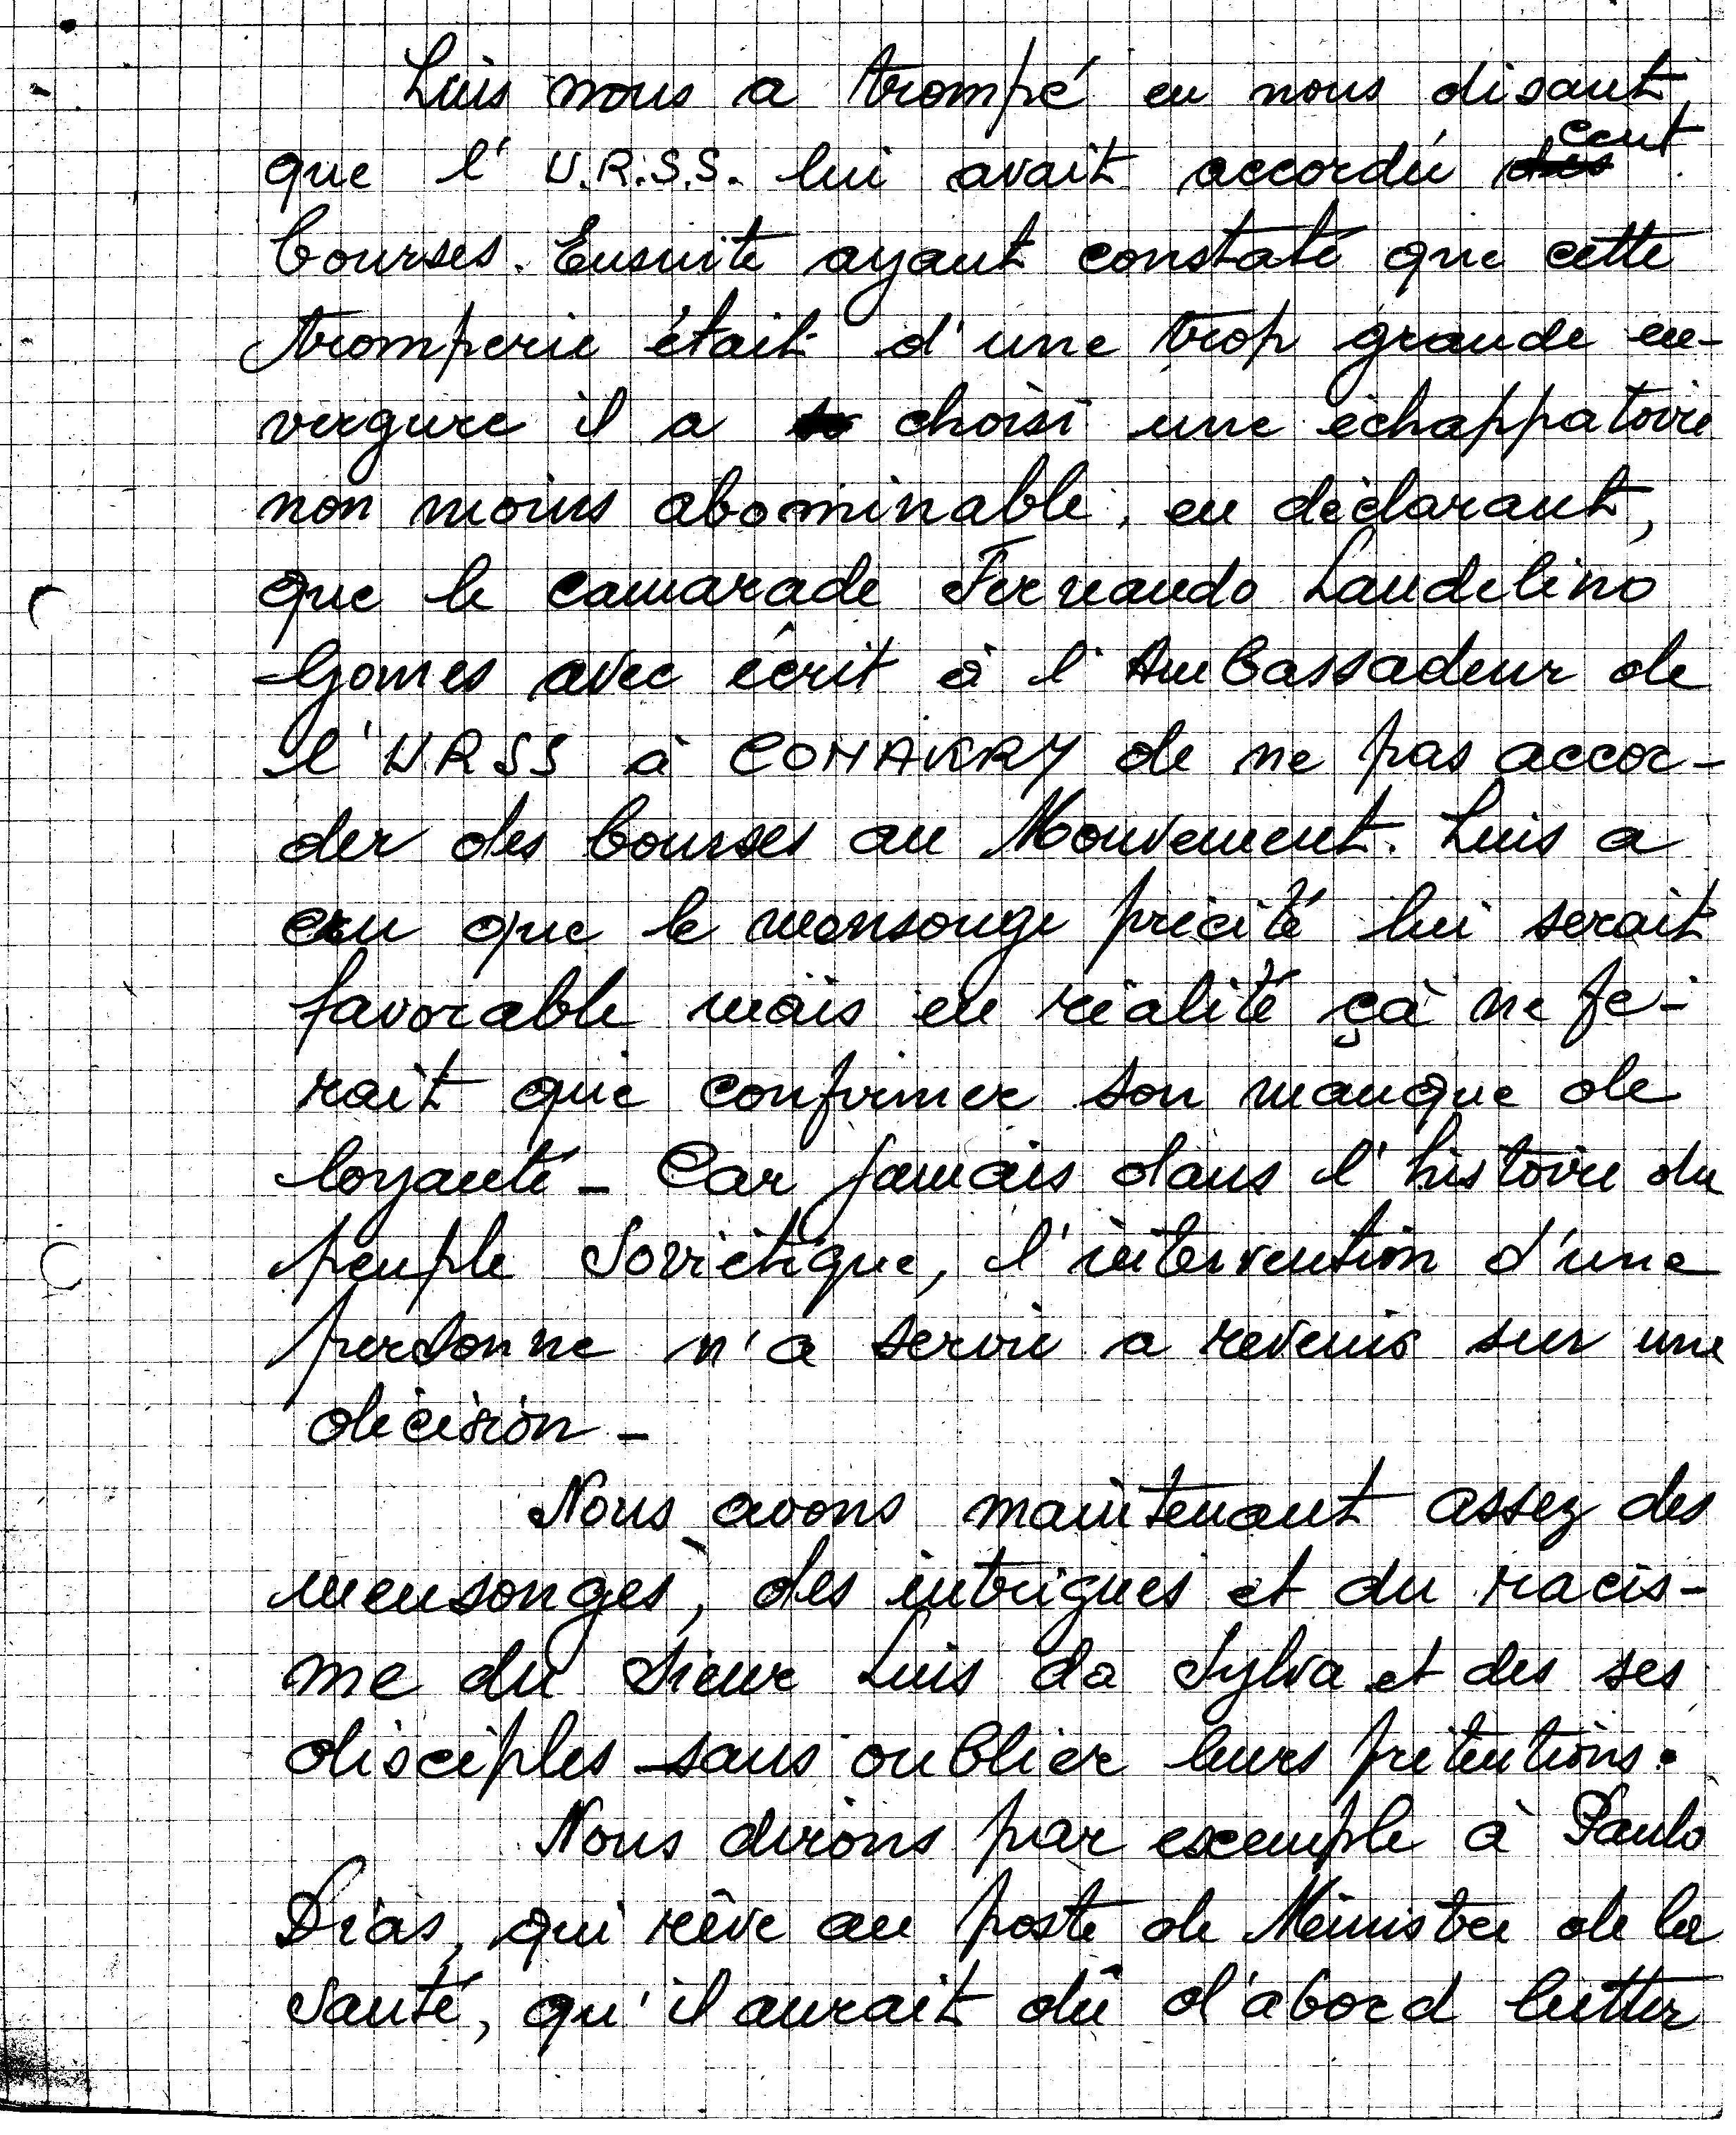 Luis nous a trompé en nous disant
que l'U.R.S.S. lui avait accordé cent
bourses. Ensuite ayant constaté que cette
tromperie était d'une trop grande en-
vergure il a choisi une échappatoire
non moins abominable, en déclarant,
que le camarade Fernando Laudelino
Gomes avec écrit à l'Ambassadeur de
l'URSS à CONAKRY de ne pas accor-
der des bourses au Mouvement. Luis a
cru que le monsonge précité lui serait
favorable mais en réalité çà ne fe-
rait que confirmer son manque de
loyauté - Car jamais dans l'histoire du
peuple Soviétique, l'intervention d'une
personne n'a servie a revenir sur une
décision -
Nous avons maintenant assez des
mensonges, des intrigues et du racis-
me du Sieur Luis da Sylva et des ses
disciples sans oublier leurs prétentions.
Nous dirons par exemple à Paulo
Dias, qui rêve au poste de Ministre de la
Santé, qu'il aurait dû d'abord lutter